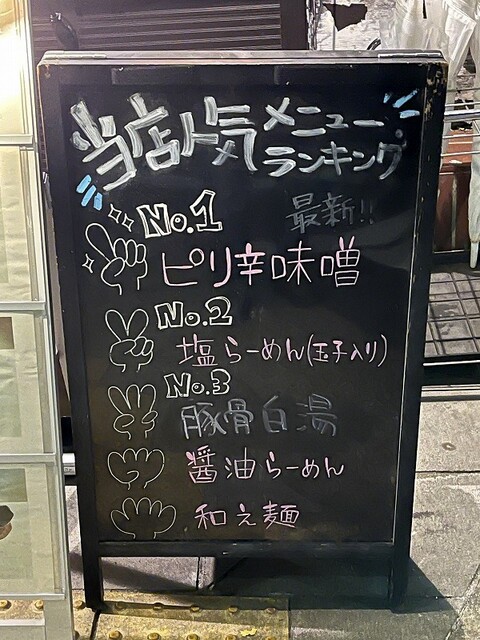 当店人気メニュー
ランキング
最新!!
No.1
ピリ辛味噌
No.2
塩らーめん(玉子入り)
No.3
豚骨白湯
醤油らーめん
和え麺